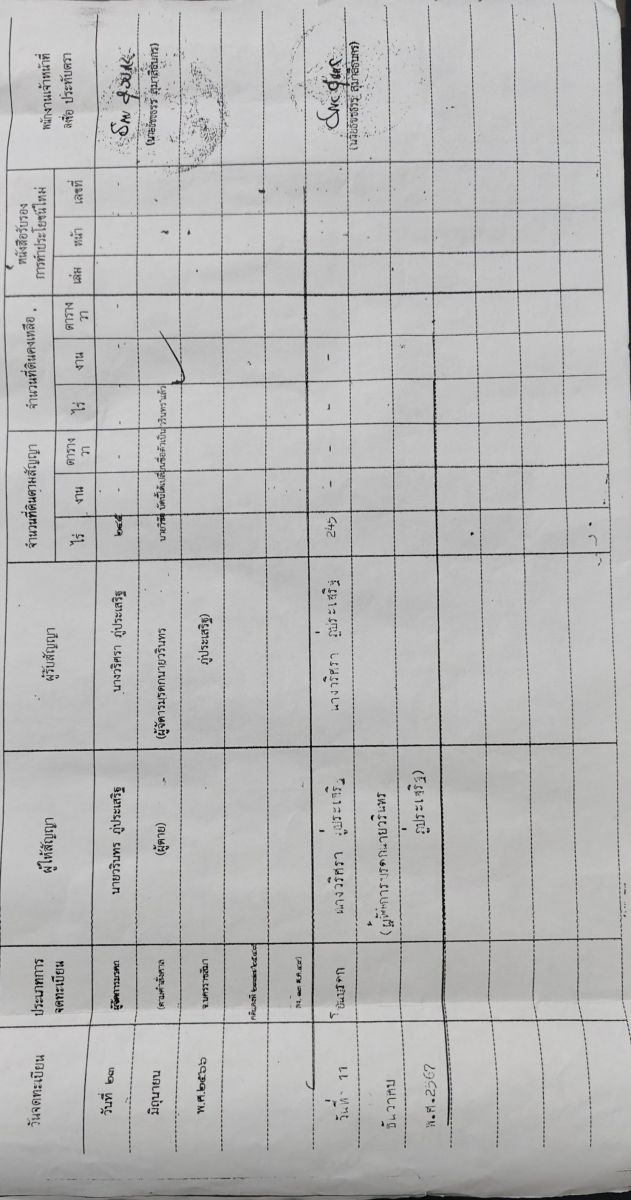 วันจดทะเบียน
ประเภทการ
จดทะเบียน
ผู้ให้สัญญา
ผู้รับสัญญา
จำนวนที่ดินตามสัญญา
ไร่ งาน ตาราง
วา
จำนวนที่ดินคงเหลือ
ไร่ งาน ตาราง
วา
หนังสือรับรอง
การทำประโยชน์ใหม่
เล่ม หน้า เลขที่
พนักงานเจ้าหน้าที่
ลงชื่อ ประทับตรา
วันที่ ๒๓ ผู้จัดการมรดก นายวรินทร ภู่ประเสริฐ นางวริศรา ภู่ประเสริฐ ๒๔๕ - - - - - - - -
มิถุนายน (ตามคำสั่งศาล (ผู้ตาย) (ผู้จัดการมรดกนายวรินทร
พ.ศ.๒๕๖๖ จ.นครราชสีมา ภู่ประเสริฐ)
วันที่ 11 โอนมรดก นางวริศรา ภู่ประเสริฐ นางวริศรา ภู่ประเสริฐ 245 - - - - -
ธันวาคม (ผู้จัดการมรดกนายวรินทร
พ.ศ.2567 ภู่ประเสริฐ)